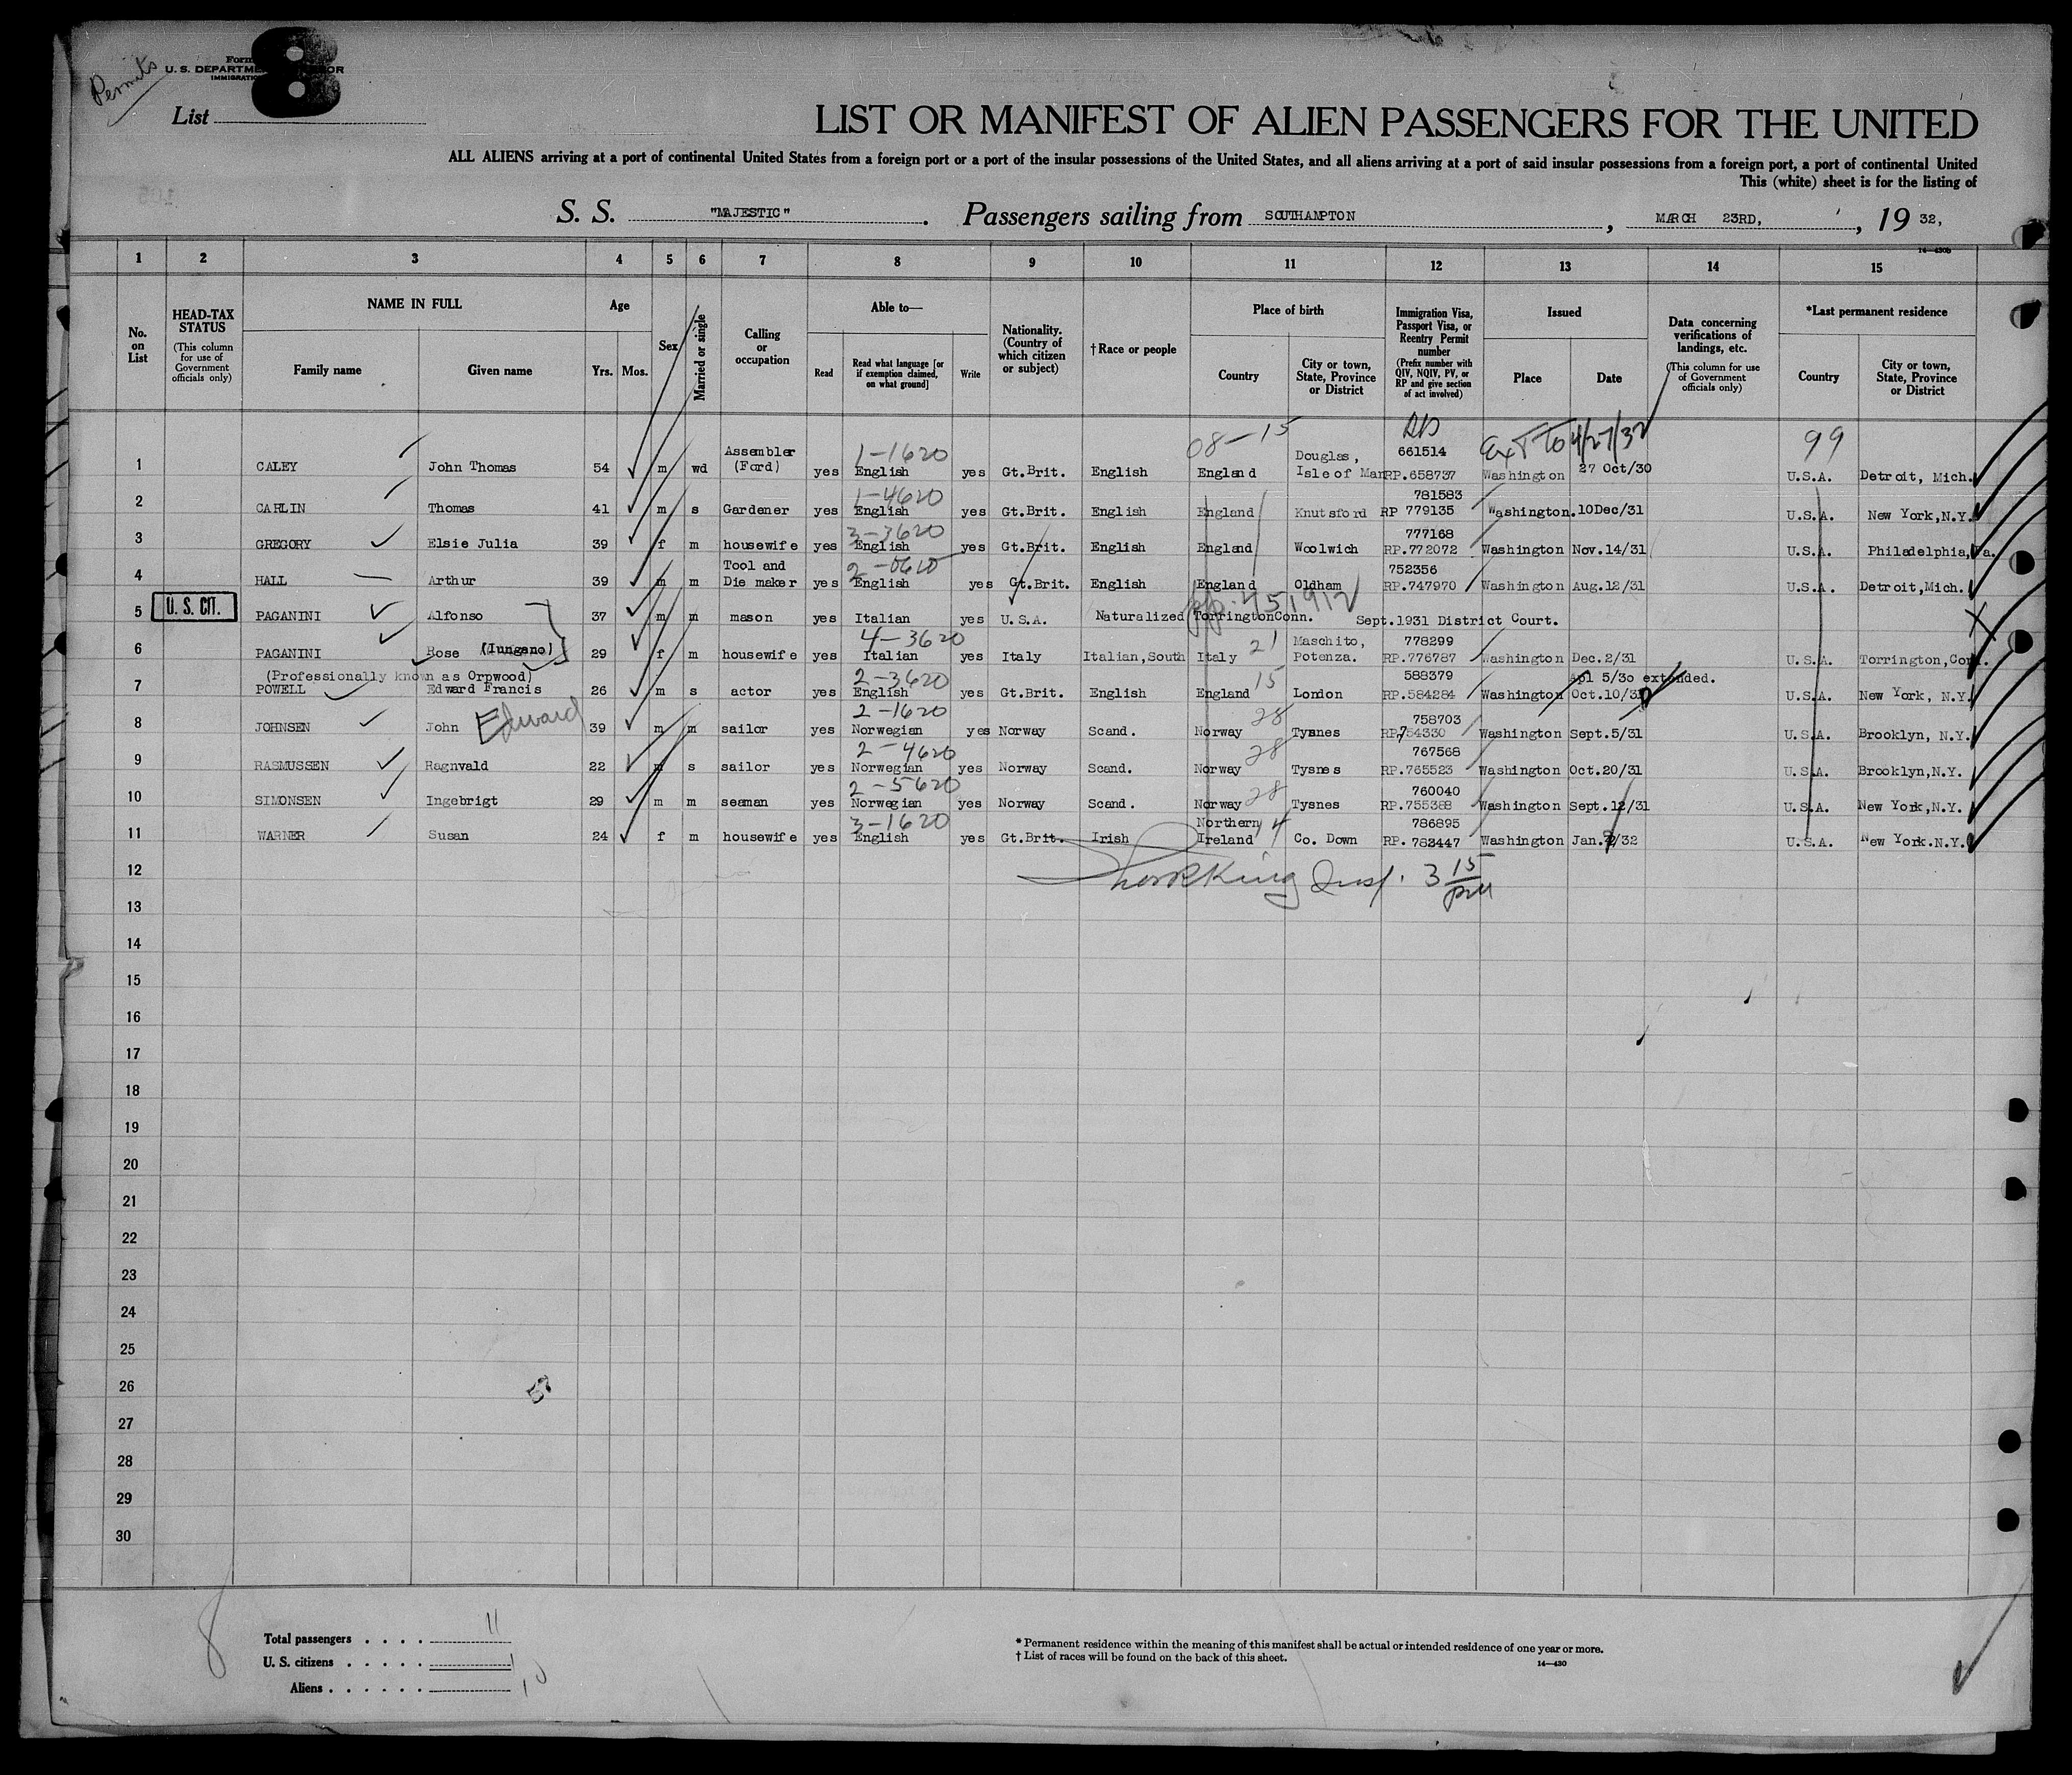 Permits
Form
U. S. DEPARTM OR
IMMIGRATIO
8
List
LIST OR MANIFEST OF ALIEN PASSENGERS FOR THE UNITED
ALL ALIENS arriving at a port of continental United States from a foreign port or a port of the insular possessions of the United States, and all aliens arriving at a port of said insular possessions from a foreign port, a port of continental United
This (white) sheet is for the listing of
S. S. "MAJESTIC". Passengers sailing from SOUTHAMPTON, MARCH 23RD, , 19 32,
14—430b
1 2 3 4 5 6 7 8 9 10 11 12 13 14 15
No. on List
HEAD-TAX STATUS (This column for use of Government officials only)
NAME IN FULL
Family name Given name
Age
Yrs. Mos.
Sex
Married or single
Calling or occupation
Able to—
Read Read what language [or if exemption claimed, on what ground] Write
Nationality. (Country of which citizen or subject)
†Race or people
Place of birth
Country City or town, State, Province or District
Immigration Visa, Passport Visa, or Reentry Permit number (Prefix number with QIV, NQIV, PV, or RP and give section of act involved)
Issued
Place Date
Data concerning verifications of landings, etc. (This column for use of Government officials only)
*Last permanent residence
Country City or town, State, Province or District
1-1620 08-15 Ext to 4/27/32 99
1 CALEY John Thomas 54 m wd Assembler (Ford) yes English yes Gt.Brit. English England Douglas, Isle of Man 661514 RP.658737 Washington 27 Oct/30 U.S.A. Detroit, Mich.
1-4620
2 CARLIN Thomas 41 m s Gardener yes English yes Gt.Brit. English England Knutsford 781583 RP 779135 Washington.10Dec/31 U.S.A. New York,N.Y.
3-3620
3 GREGORY Elsie Julia 39 f m housewife yes English yes Gt.Brit. English England Woolwich 777168 RP.772072 Washington Nov.14/31 U.S.A. Philadelphia,Pa.
2-0610
4 HALL Arthur 39 m m Tool and Die maker yes English yes Gt.Brit. English England Oldham 752356 RP.747970 Washington Aug.12/31 U.S.A. Detroit,Mich.
U. S. CIT.
5 PAGANINI Alfonso 37 m m mason yes Italian yes U.S.A. Naturalized TorringtonConn. Sept.1931 District Court.
4-3620 21
6 PAGANINI Rose (Iungano) 29 f m housewife yes Italian yes Italy Italian,South Italy Maschito, Potenza. 778299 RP.776787 Washington Dec.2/31 U.S.A. Torrington,Conn.
(Professionally known as Orpwood)
2-3620 15
7 POWELL Edward Francis 26 m s actor yes English yes Gt.Brit. English England London 588379 RP.584284 Washington Apl 5/30 extended. Oct.10/30 U.S.A. New York, N.Y.
2-1620 28
8 JOHNSEN John Edward 39 m m sailor yes Norwegian yes Norway Scand. Norway Tysnes 758703 RP.754330 Washington Sept.5/31 U.S.A. Brooklyn, N.Y.
2-4620 28
9 RASMUSSEN Ragnvald 22 m s sailor yes Norwegian yes Norway Scand. Norway Tysnes 767568 RP.765523 Washington Oct.20/31 U.S.A. Brooklyn,N.Y.
2-5620 28
10 SIMONSEN Ingebrigt 29 m m seaman yes Norwegian yes Norway Scand. Norway Tysnes 760040 RP.755388 Washington Sept.12/31 U.S.A. New York,N.Y.
3-1620 14
11 WARNER Susan 24 f m housewife yes English yes Gt.Brit. Irish Northern Ireland Co. Down 786895 RP. 783447 Washington U.S.A. New York.N.Y.
12 King Insp. 3 15 pm
13
14
15
16
17
18
19
20
21
22
23
24
25
26
27
28
29
30
8
Total passengers . . . . 11
U. S. citizens . . . . . 1
Aliens . . . . . . 10
* Permanent residence within the meaning of this manifest shall be actual or intended residence of one year or more.
† List of races will be found on the back of this sheet.
14—430